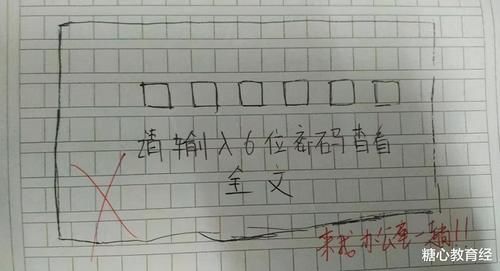 请输入6位密码查看
全文
来我办公室一趟!!
糖心教育经